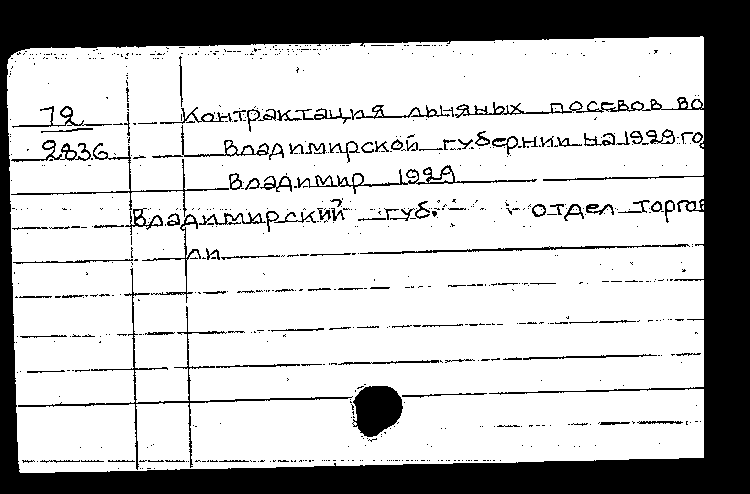 72
2836
Контрактация льняных посевов во
Владимирской губернии на 1929 го
Владимир 1929
Владимирский губ. отдел торгов
ли